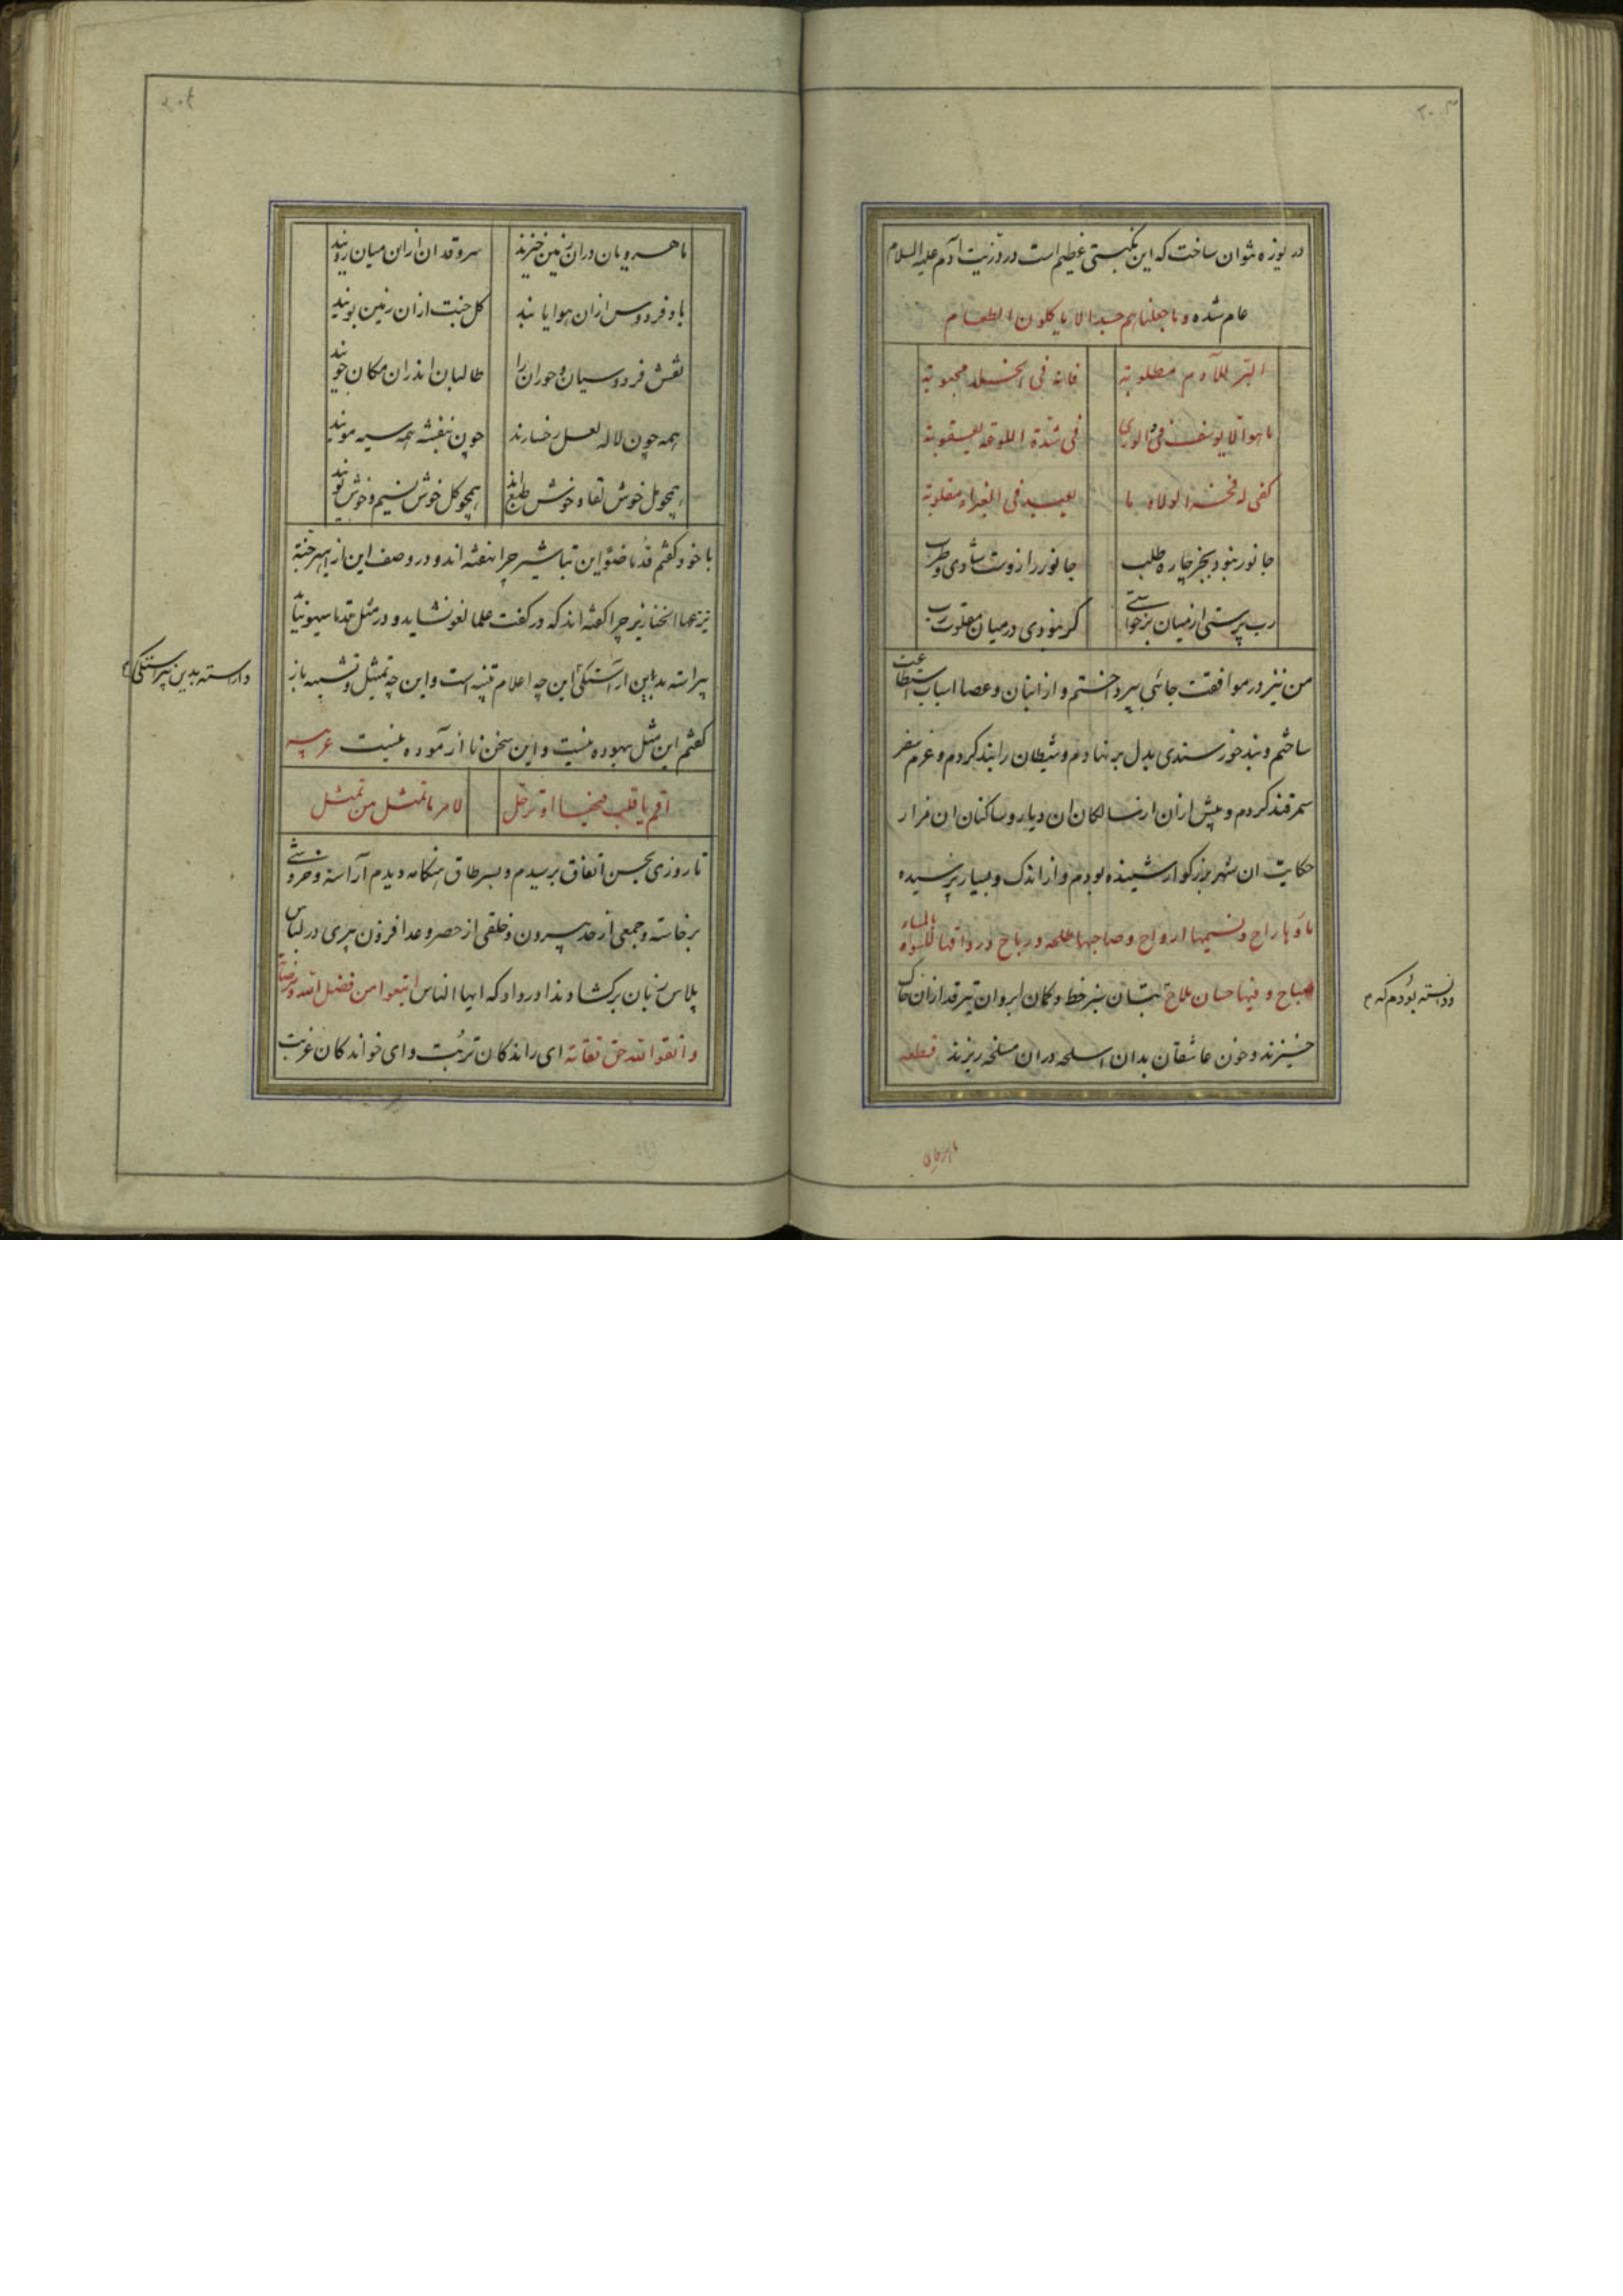 ۳۰۳
در یوزه نتوان ساخت که این نکبتی عظیم است در ذریت آدم علیه السلام
عام شده وما جعلناهم جسدا لا یاکلون الطعام
البر للآدم مطلوبة فانه فی الخلد محبوبة
ما هو الا یوسف فی الوری فی شدة اللوعة یعقوبة
کفی له فخرا لولاه ما یعبد فی الغبراء مقلوبة
جانور نبود بجز چاره طلب جانور را ازوست شادی و طرب
رب پرستی از میان برخواستی کر نبودی در میان مقلوب رب
من نیز در موافقت جائی بپرداختم و از انبان و عصا اسباب استطاعت
ساختم و بند خورسندی بدل بر نهادم و شیطان را بند کردم و عزم سفر
سمرقند کردم و پیش ازان از سالکان ان دیار و ساکنان ان مزار
حکایت ان شهر بزرکوار شنیده بودم و از اندک و بسیار پرسیده
ودانسته بودم که
ماؤها راح ونسیمها ارواح وصباحها طلحه ورباح ورواقها للنساء
صباح وفیها حسان ملاح بتان سبز خط و کمان ابروان تیر قد ازان خاک
خیزند و خون عاشقان بدان اسلحه دران مسلخه ریزند قطعه
ماهرویان
۳۰۴
ماهرویان دران زمین خیزند سروقدان ازاین میان رویند
باد فردوس ازان هوا یابند کل جنت ازان زمین بویند
نقش فردوسیان و حوران را طالبان اندران مکان جویند
همه چون لاله لعل رخسارند چون بنفشه همه سیه مویند
همچو مل خوش لقا و خوش طبعند همچو کل خوش نسیم و خوش بویند
با خود کفتم قدما ضوء این تباشیر چرا نهفته اند و در وصف این از بهر جنة
ترعها الخنازیر چرا کفته اند که در کفت علما لغو نشاید و در مثل قدما سهو نیاید
واراسته بدین پیراستکی
پیراسته بدین اراستکی این چه اعلام تنبیه است و این چه تمثیل و تشبیه باز
کفتم این مثل بیهوده نیست و این سخن نا ازموده نیست عربیه
اقم یا قلب فیها او ترحل لامر ما تمثل من تمثل
تا روزی بحسن اتفاق برسیدم و بسر طاق هنکامه دیدم آراسته و خروشی
برخاسته و جمعی از حد بیرون و خلقی از حصر و عد افزون پیری در لباس
پلاس زبان برکشاد و ندا در داد که ایها الناس ابتغوا من فضل الله ومرضاته
واتقوا الله حق تقاته ای راندکان تربت و ای خواندکان غربت